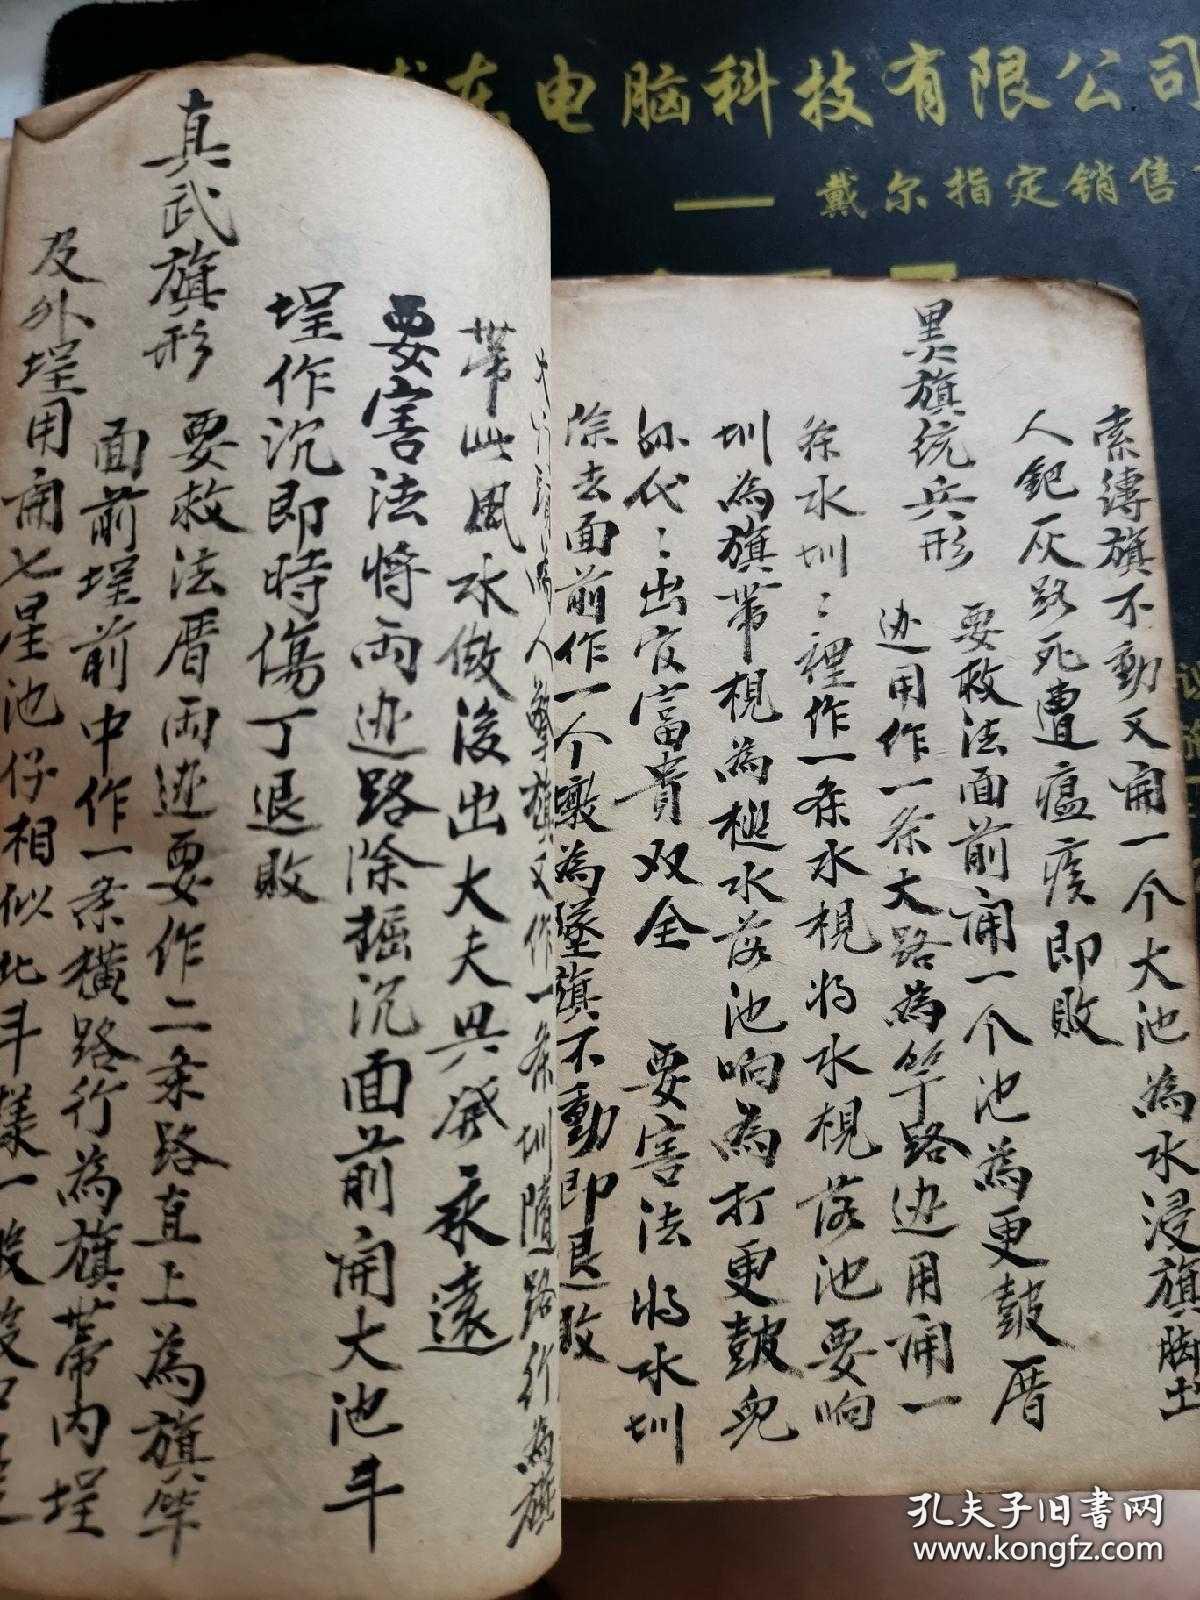 东电脑科技有限公司
戴尔指定销售
索縛旗不動又開一个大池為水浸旗脚土
人鈀灰路死遭瘟疾即敗
黑旗统兵形
要救法面前開一个池為更鼓厝
边用作一条大路為竿路边用開一
条水圳〻裡作一条水梘将水梘落池要响
圳為旗帶梘為槌水落池响為打更鼓
代〻出官富貴双全 要害法将水圳
除去面前作一个墩為墜旗不動即退敗
人 又作一条圳隨路行為旗
帶此風水做後出大夫興發永遠
要害法将兩边路除掘沉面前開大池斗
埕作沉即時傷丁退敗
真武旗形
要救法厝兩边要作二条路直上為旗竿
面前埕前中作一条橫路行為旗帶内埕
及外埕用開七星池仔相似北斗樣一般
孔夫子旧书网
www.kongfz.com